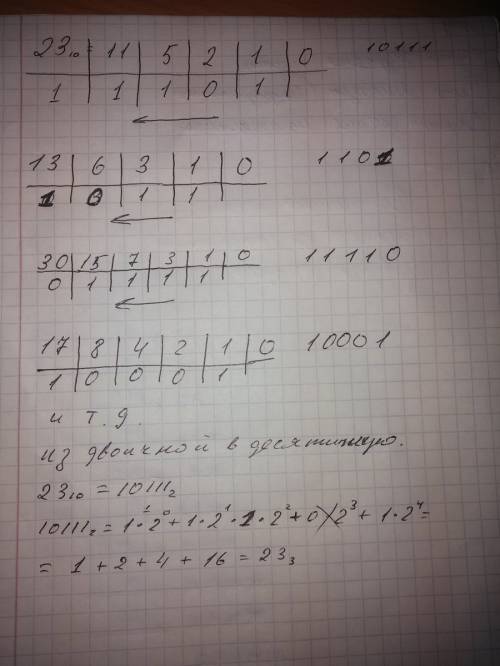 23₁₀ = 11 | 5 | 2 | 1 | 0 10111
1 | 1 | 1 | 0 | 1 |
13 | 6 | 3 | 1 | 0 1101
1 | 0 | 1 | 1 |
30 | 15 | 7 | 3 | 1 | 0 11110
0 | 1 | 1 | 1 | 1 |
17 | 8 | 4 | 2 | 1 | 0 10001
1 | 0 | 0 | 0 | 1 |
и т.д.
из двоичной в десятичную.
23₁₀ = 10111₂
10111₂ = 1·2⁰ + 1·2¹·1·2² + 0·2³ + 1·2⁴ =
= 1 + 2 + 4 + 16 = 23₃